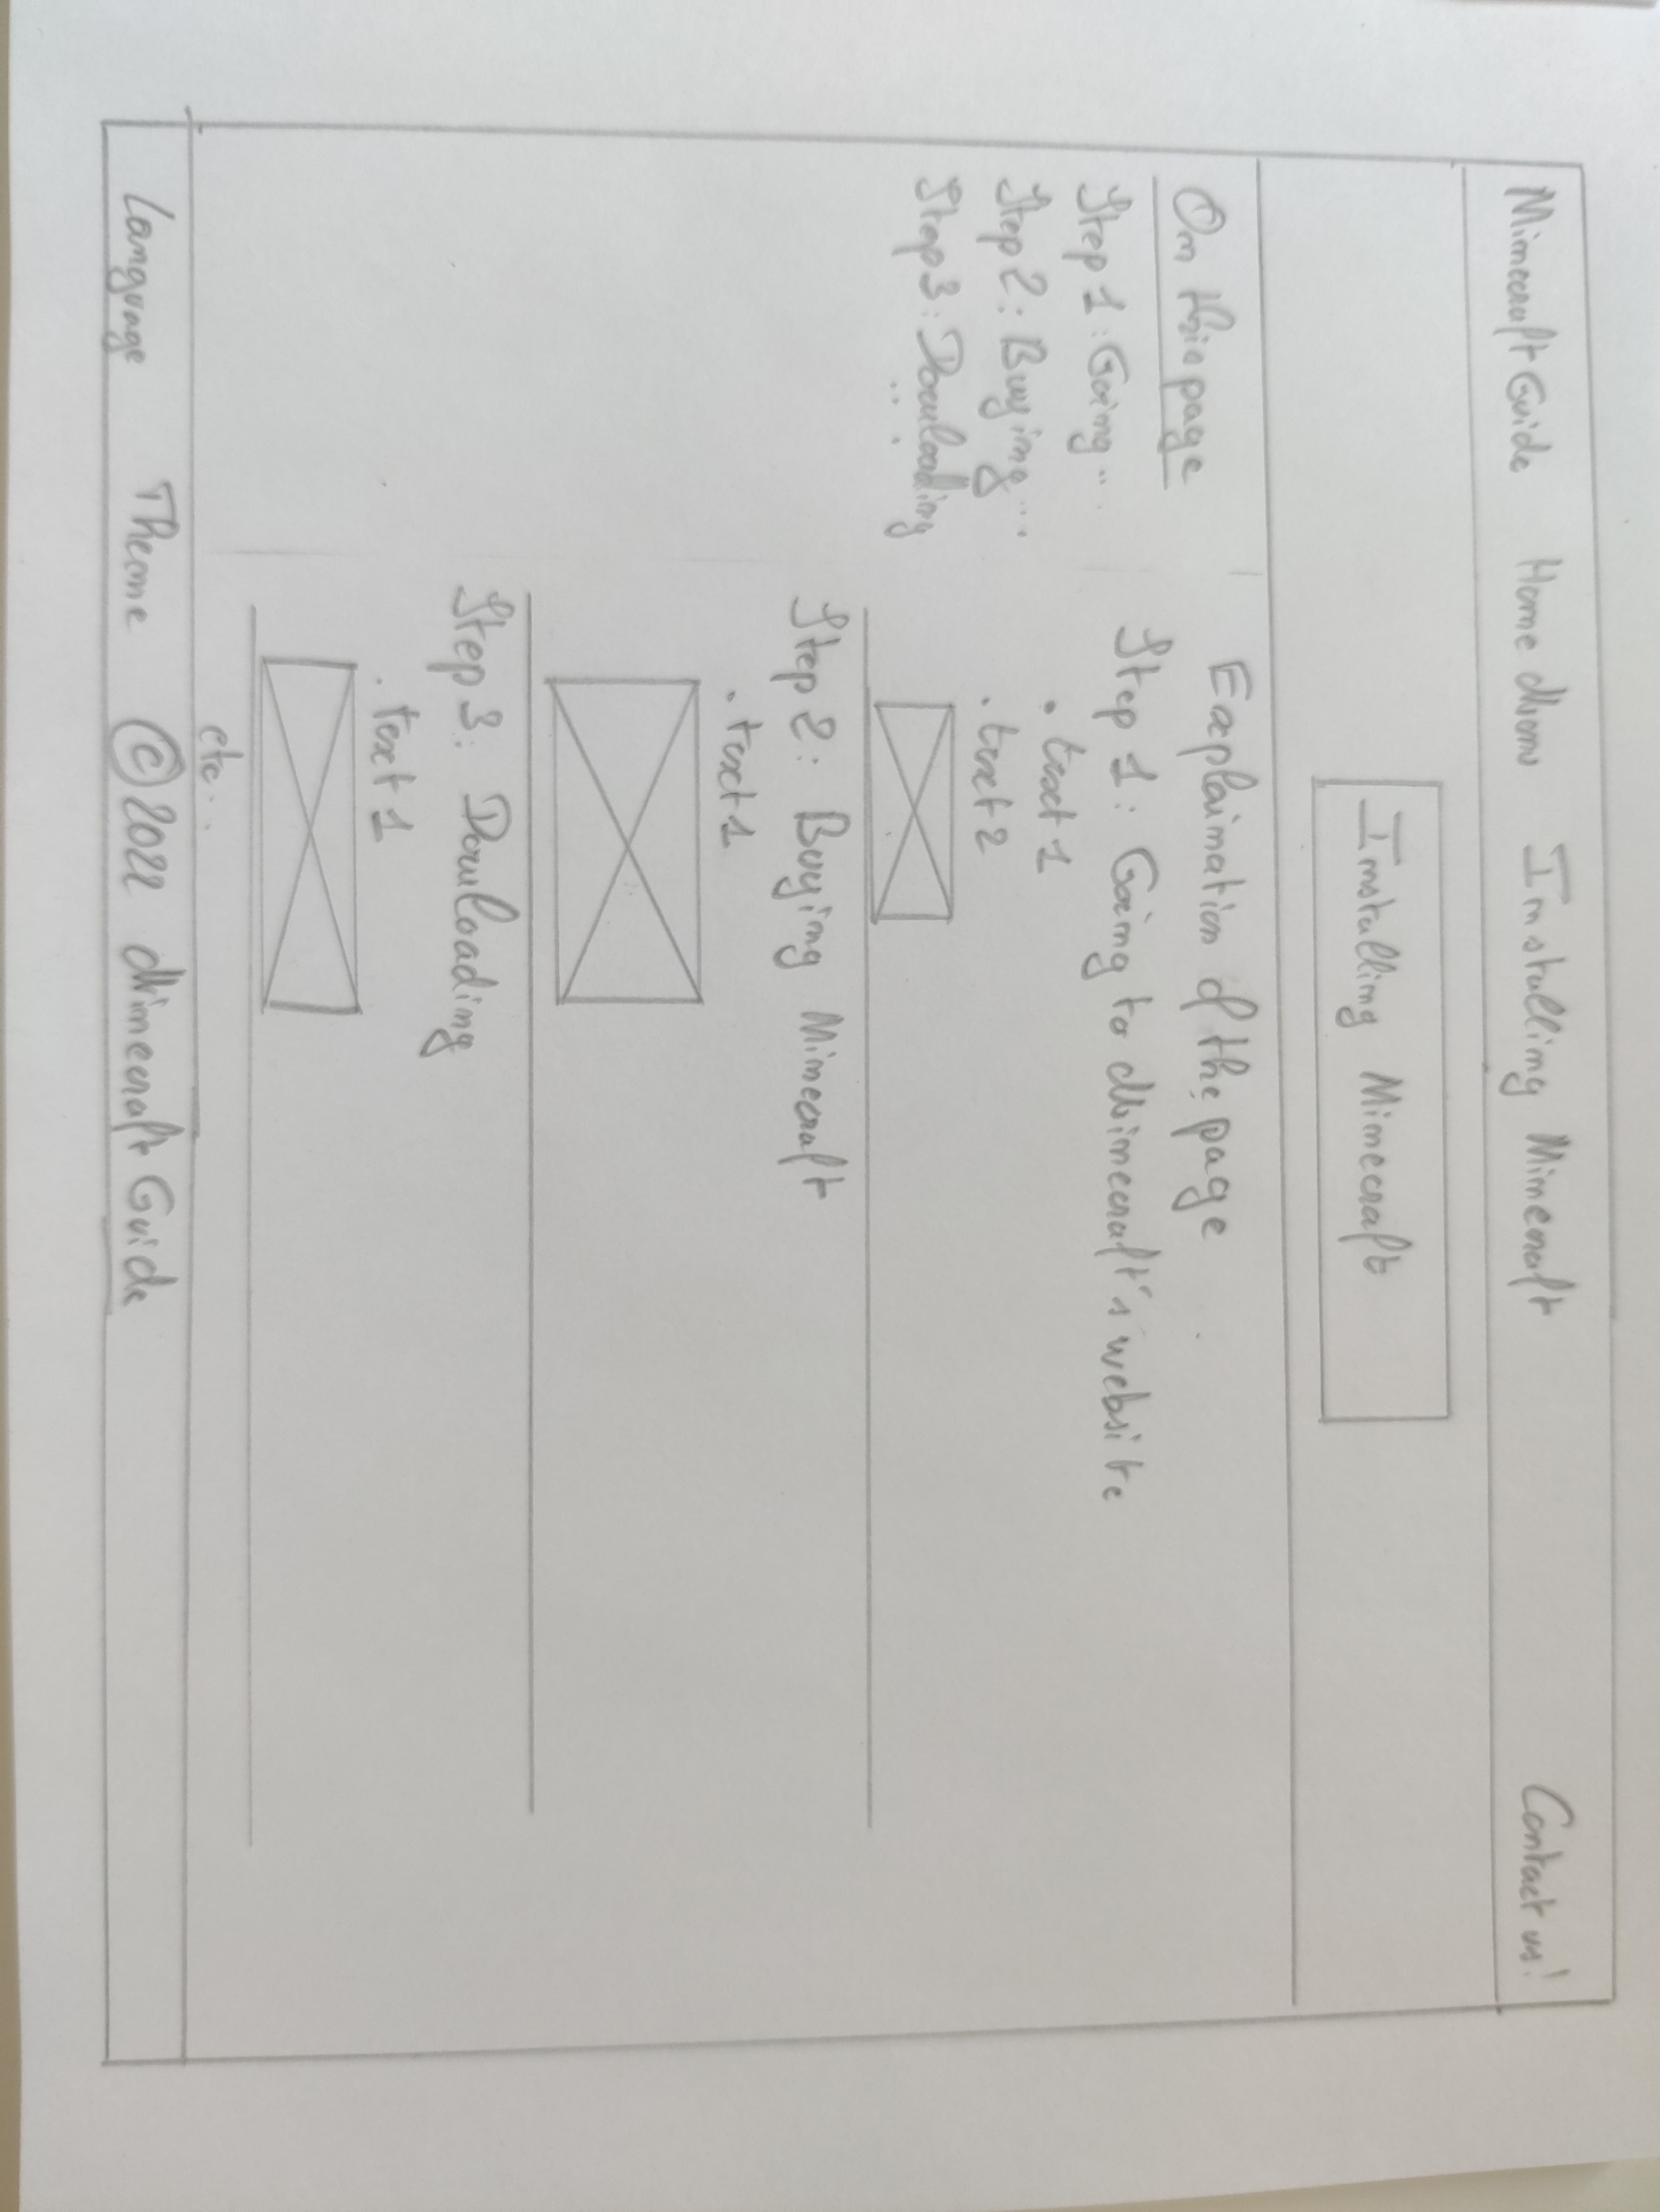 Minecraft Guide Home Mions Installing Minecraft Contact us!
Installing Minecraft
On this page
Step 1: Going...
Step 2: Buying...
Step 3: Dowloading
...
Explaination of the page
Step 1: Going to Minecraft's website
• text 1
• text 2
Step 2: Buying Minecraft
• text 1
Step 3: Dowloading
• text 1
etc...
Language Theme © 2022 Minecraft Guide